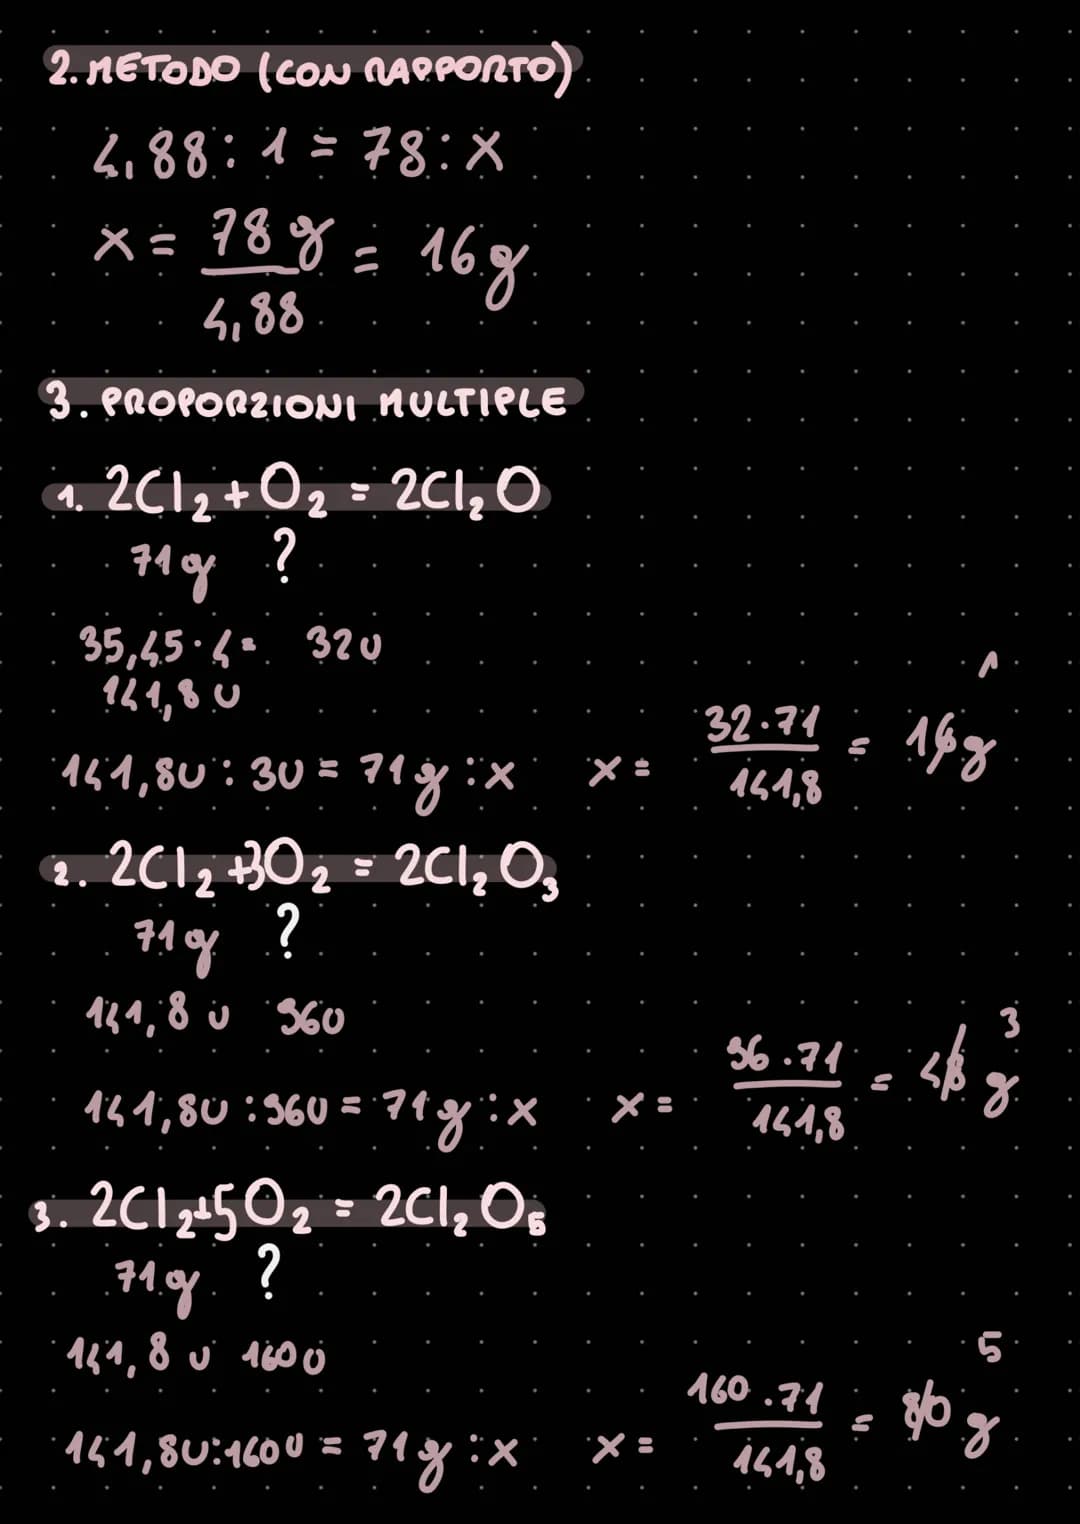 2. METODO (CON RAPPORTO)
4,88 : 1 = 78 : x
x = 78 g / 4,88 = 16 g
3. PROPORZIONI MULTIPLE
1. 2Cl₂ + O₂ = 2Cl₂O
71 g ?
35,45 · 4 = 32 U
141,8 U
1
141,8U : 3U = 71 g : x x = 32 · 71 / 141,8 = 16 g
2. 2Cl₂ + 3O₂ = 2Cl₂O₃
71 g ?
141,8 U 96U
3
141,8U : 96U = 71 g : x x = 96 · 71 / 141,8 = 48 g
3. 2Cl₂ + 5O₂ = 2Cl₂O₅
71 g ?
141,8 U 160 U
5
141,8U : 160U = 71 g : x x = 160 · 71 / 141,8 = 80 g